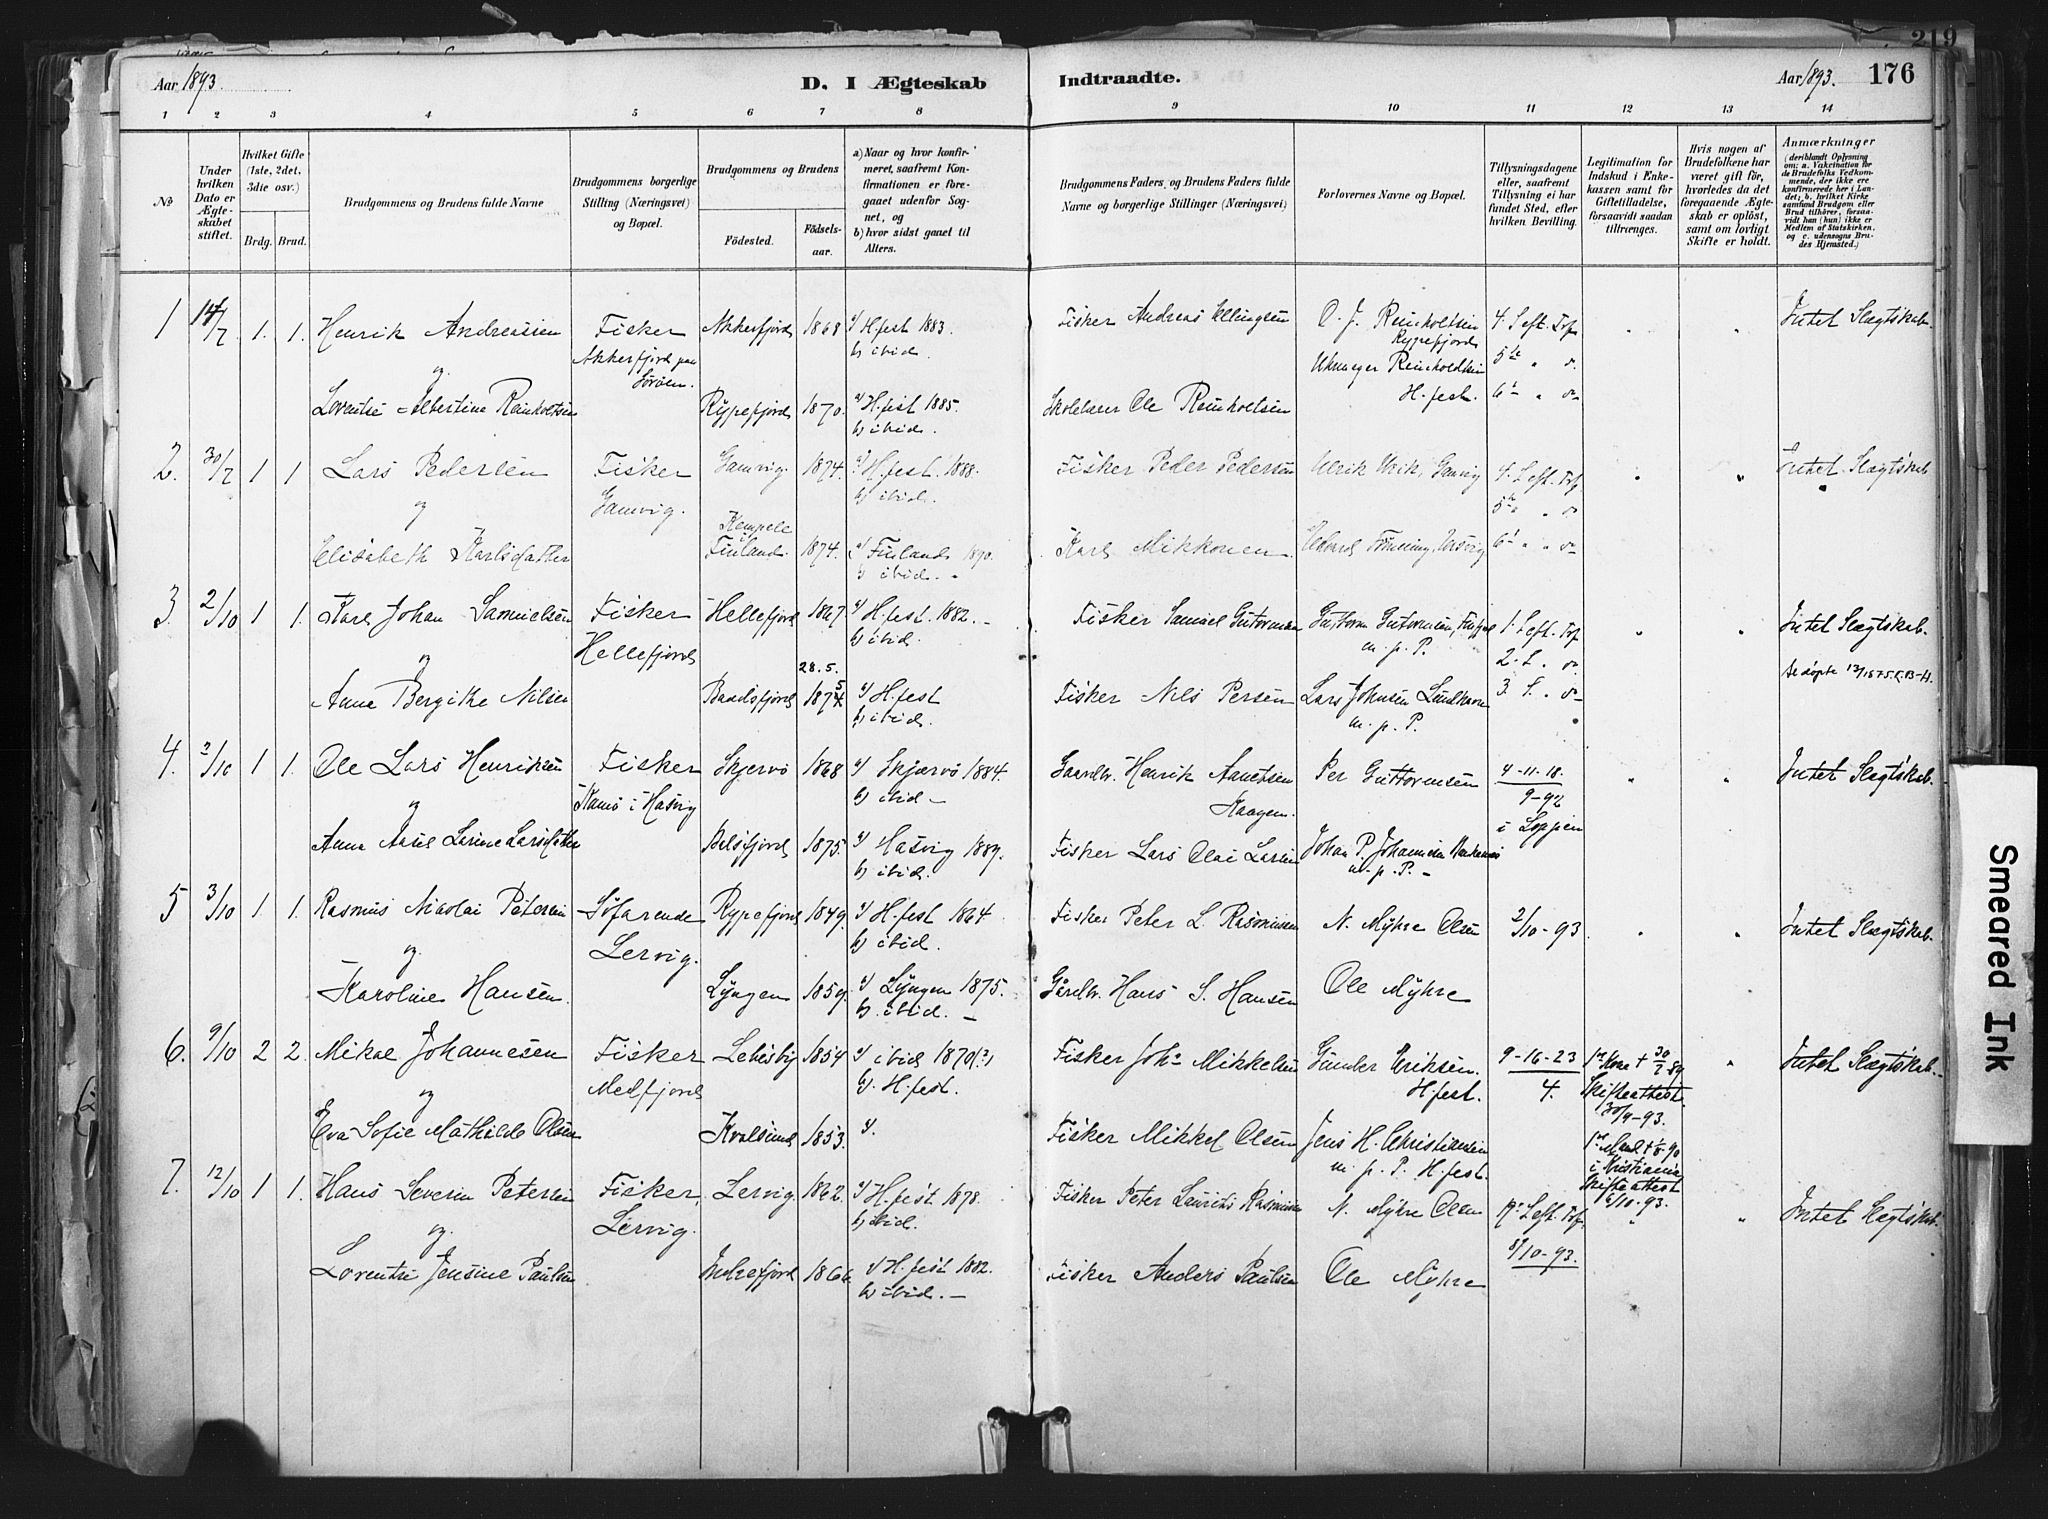 219
Aar 1893.
D. I Ægteskab
Indtraadte.
Aar 1893.
176
1 2 3 4 5 6 7 8 9 10 11 12 13 14
№
Under hvilken Dato er Ægteskabet stiftet.
Hvilket Gifte (1ste, 2det, 3die osv.)
Brdg. Brud.
Brudgommens og Brudens fulde Navne
Brudgommens borgerlige Stilling (Næringsvei) og Bopæl.
Brudgommens og Brudens
Fødested.
Fødselsaar.
a) Naar og hvor konfirmeret, saafremt Konfirmationen er foregaaet udenfor Sognet, og
b) hvor sidst gaaet til Alters.
Brudgommens Faders og Brudens Faders fulde Navne og borgerlige Stillinger (Næringsvei)
Forlovernes Navne og Bopæl.
Tillysningsdagene eller, saafremt Tillysning ei har fundet Sted, efter hvilken Bevilling.
Legitimation for Indskud i Enkekassen samt for Giftetilladelse, forsaavidt saadan tiltrænges.
Hvis nogen af Brudefolkene har været gift før, hvorledes da det foregaaende Ægteskab er opløst, samt om lovligt Skifte er holdt.
Anmærkninger
(deriblandt Oplysning om: a. Vakcination for de Brudefolks Vedkommende, der ikke ere konfirmerede her i Landet; b. hvilket Kirkesamfund Brudgom eller Brud tilhører, forsaavidt han (hun) ikke er Medlem af Statskirken, og c. udensogns Brudes Hjemsted.)
1 14/7 1. 1. Henrik Andreassen Fisker Akkerfjord 1868 a) H.fest 1883. Fisker Andreas Ellingsen O. J. Reinholtsen 4. S. eft. Trf. Intet Slægtskab.
Akkerfjord paa Sørøen. b) ibid. Rypefjord
og Reinholdtsen 5te " do
Lorentse Albertine Reinholtsen Rypefjord 1870. a) H.fest 1885. Skolelærer Ole Reinholtsen H.fest. 6te " do
b) ibid.
2. 30/7 1 1 Lars Pedersen Fisker Gamvig 1874. a) H.fest. 1888. Fisker Peder Pedersen Ulrik Gamvig 4. S. eft. Trf. Intet Slægtskab
og Gamvig. b) ibid. 5te " do
Kempele i
Elisabeth Karlsdatter Finland. 1874. a) Finland 1890. Karl Mikkonen 6te " do
b) ibid.
3. 2/10 1 1. Karl Johan Samuelsen Fisker Hellefjord 1867 a) H.fest. 1882. Fisker Samuel Guttormsen Guttorm Guttormsen, 1. S. eft. Trf. Intet Slægtskab.
og Hellefjord b) ibid m. p. P. 2. S. " do
28.5. Se døpte 12/1875 R.B-H.
Anna Bergithe Nilsen Baadsfjord 1875 a) H.fest Fisker Nils Persen Lars Johnsen 3. S. " do
b) ibid. m. p. P.
4. 2/10 1 1. Ole Lars Henriksen Fisker Skjervø 1868 a) Skjærvø 1884. Gaardbr. Henrik Annetsen Per Guttormsen 4-11-18. Intet Slægtskab.
og i Hasvig b) ibid Kaagen. 9-92
i Loppen
Anna Larine Larsdatter 1875. a) Hasvig 1889. Fisker Lars Olai Larsen Johan P. Johannesen
b) ibid. m. p. P.
5 3/10 1. 1. Rasmus Nicolai Petersen Søfarende Rypefjord 1849. a) H.fest 1864 Fisker Peter L. Rasmussen N. Myhre Olsen 2/10-93. Intet Slægtskab.
og Lervig. b) ibid.
Karoline Hansen Lyngen 1859. a) Lyngen 1875. Gårdbr. Hans S. Hansen Ole Myhre
b) ibid.
6. 9/10 2 2. Mikal Johannesen Fisker Lebesby 1854 a) ibid 1870(?) Fisker Joh: Mikkelsen Gunder Eriksen. 9-16-23 1ste Kone + 30/7 89 Intet Slægtskab.
og Mefjord b) H.fest. H.fest. 4. Skifteattest.
30/9-93.
Eva Sofie Mathilde Olsen Kvalsund 1853. a). Fisker Mikkel Olsen Jens H. Christiansen 1ste Mand + 1/8-90
m. p. P. H.fest. i Kristiania
Skifteattest
6/10-93.
7. 12/10 1 1. Hans Severin Petersen Fisker, Lervig. 1862. a) H.fest. 1878. Fisker Peter Laurits Rasmussen N. Myhre Olsen 19de S. eft. Trf. Intet Slægtskab.
og. Lervig. b) ibid. 8/10-93.
Lorentse Jensine Paulsen 1866 a) H.fest 1882. Fisker Anders Paulsen Ole Myhre
b) ibid.
Smeared Ink